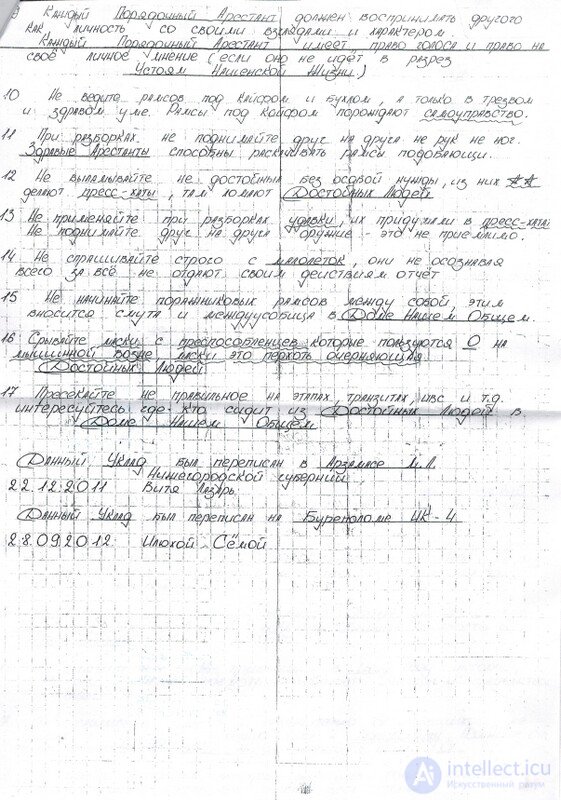 9 Каждый Порядочный Арестант должен воспринимать другого
как личность со своими взглядами и характером.
Каждый Порядочный Арестант имеет право голоса и право на
своё личное мнение (если оно не идёт в разрез
Устоям Нашенской Жизни.)
10 Не ведите рамсов под кайфом и бухлом, а только в трезвом
и здравом уме. Рамсы под кайфом порождают самоуправство.
11 При разборках не поднимайте друг на друга не рук не ног.
Здравые Арестанты способны раскидывать рамсы подобающи.
12 Не выламывайте не достойных без особой нужды, из них
делают пресс-хаты, там ломают Достойных Людей
13 Не применяйте при разборках удавки, их придумали в пресс-хатах
Не поднимайте друг на друга оружие - это не приемлимо.
14 Не спрашивайте строго с малолеток, они не осознавая
всего за всё не отдают своим действиям отчёт
15 Не начинайте порожняковых рамсов между собой, этим
вносится смута и междуусобица в Доме Нашем Общем.
16 Срывайте маски с преспособленцев которые пользуются О на
мышинной возне, маски это перхоть очерняющая
Достойных Людей
17 Пресекайте не правильное на этапах, транзитах, ивс и т.д.
интересуйтесь где кто сидит из Достойных Людей в
Доме Нашем Общем
Данный Уклад был переписан в Арзамасе М.Л.
Нижегородской губернии
22.12.2011 Витя Лазарь
Данный Уклад был переписан на Буреполоме ИК-4
28.09.2012 Илюхой Сёмой
intellect.icu
Искусственный разум